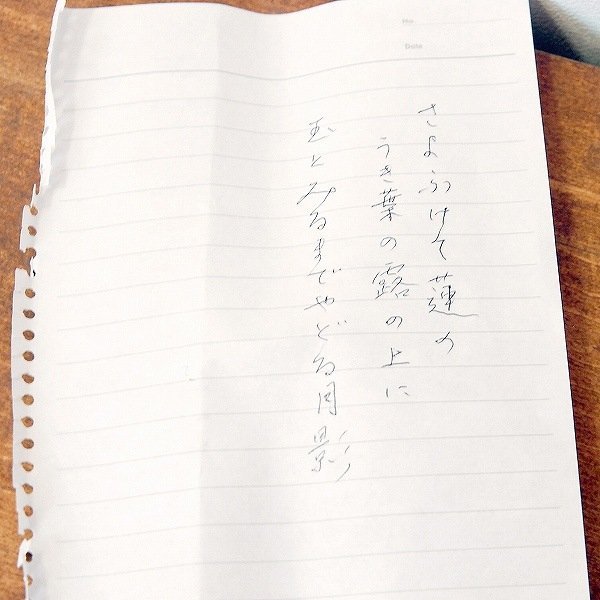 No
Date
さよふけて蓮の
うき葉の露の上に
玉とみるまでやどる月影